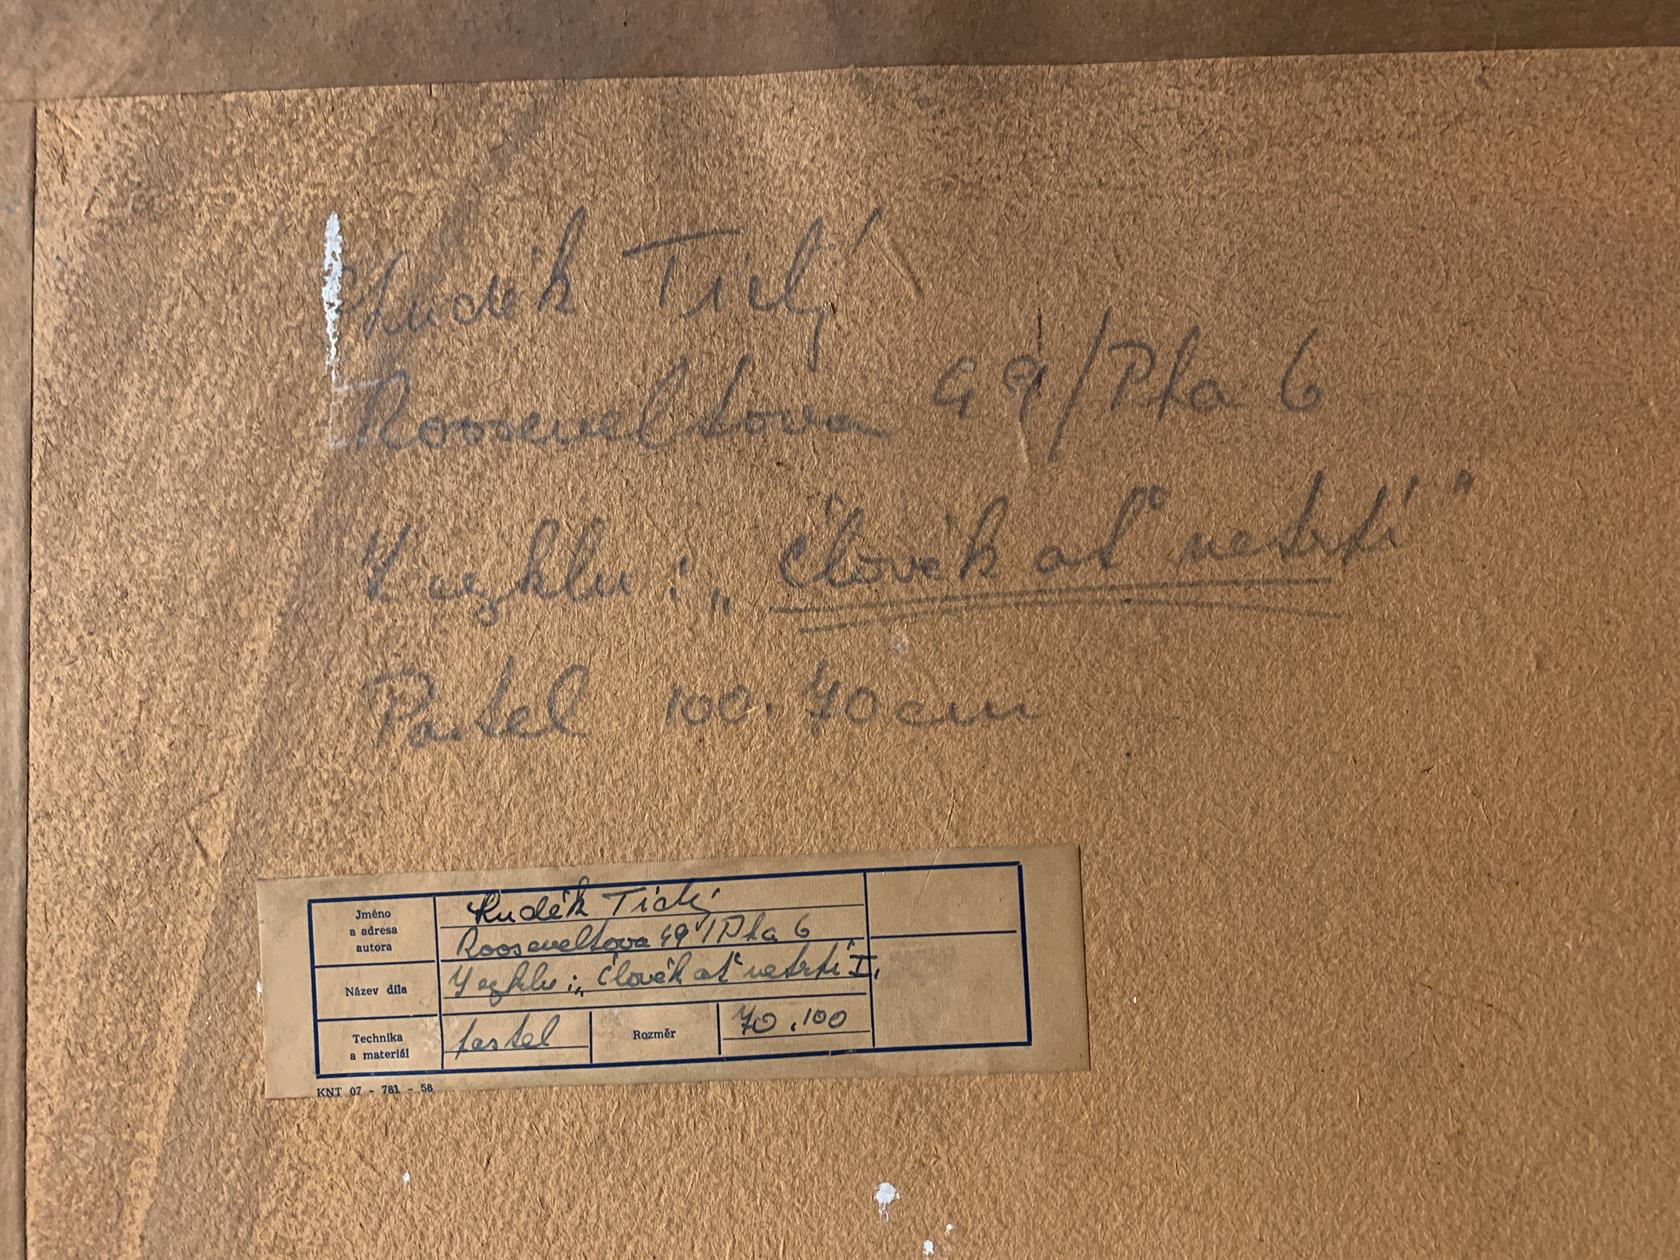 Luděk Tichý
Roosveltova 49/Pha 6
Z cyklu: „Člověk ať netrpí"
Pastel 100.70cm
Jméno
a adresa
autora
Luděk Tichý
Roosveltova 49/Pha 6
Název díla
Z cyklu: „Člověk ať netrpí" I.
Technika
a materiál
pastel
Rozměr
70.100
KNT 07 - 781 - 58